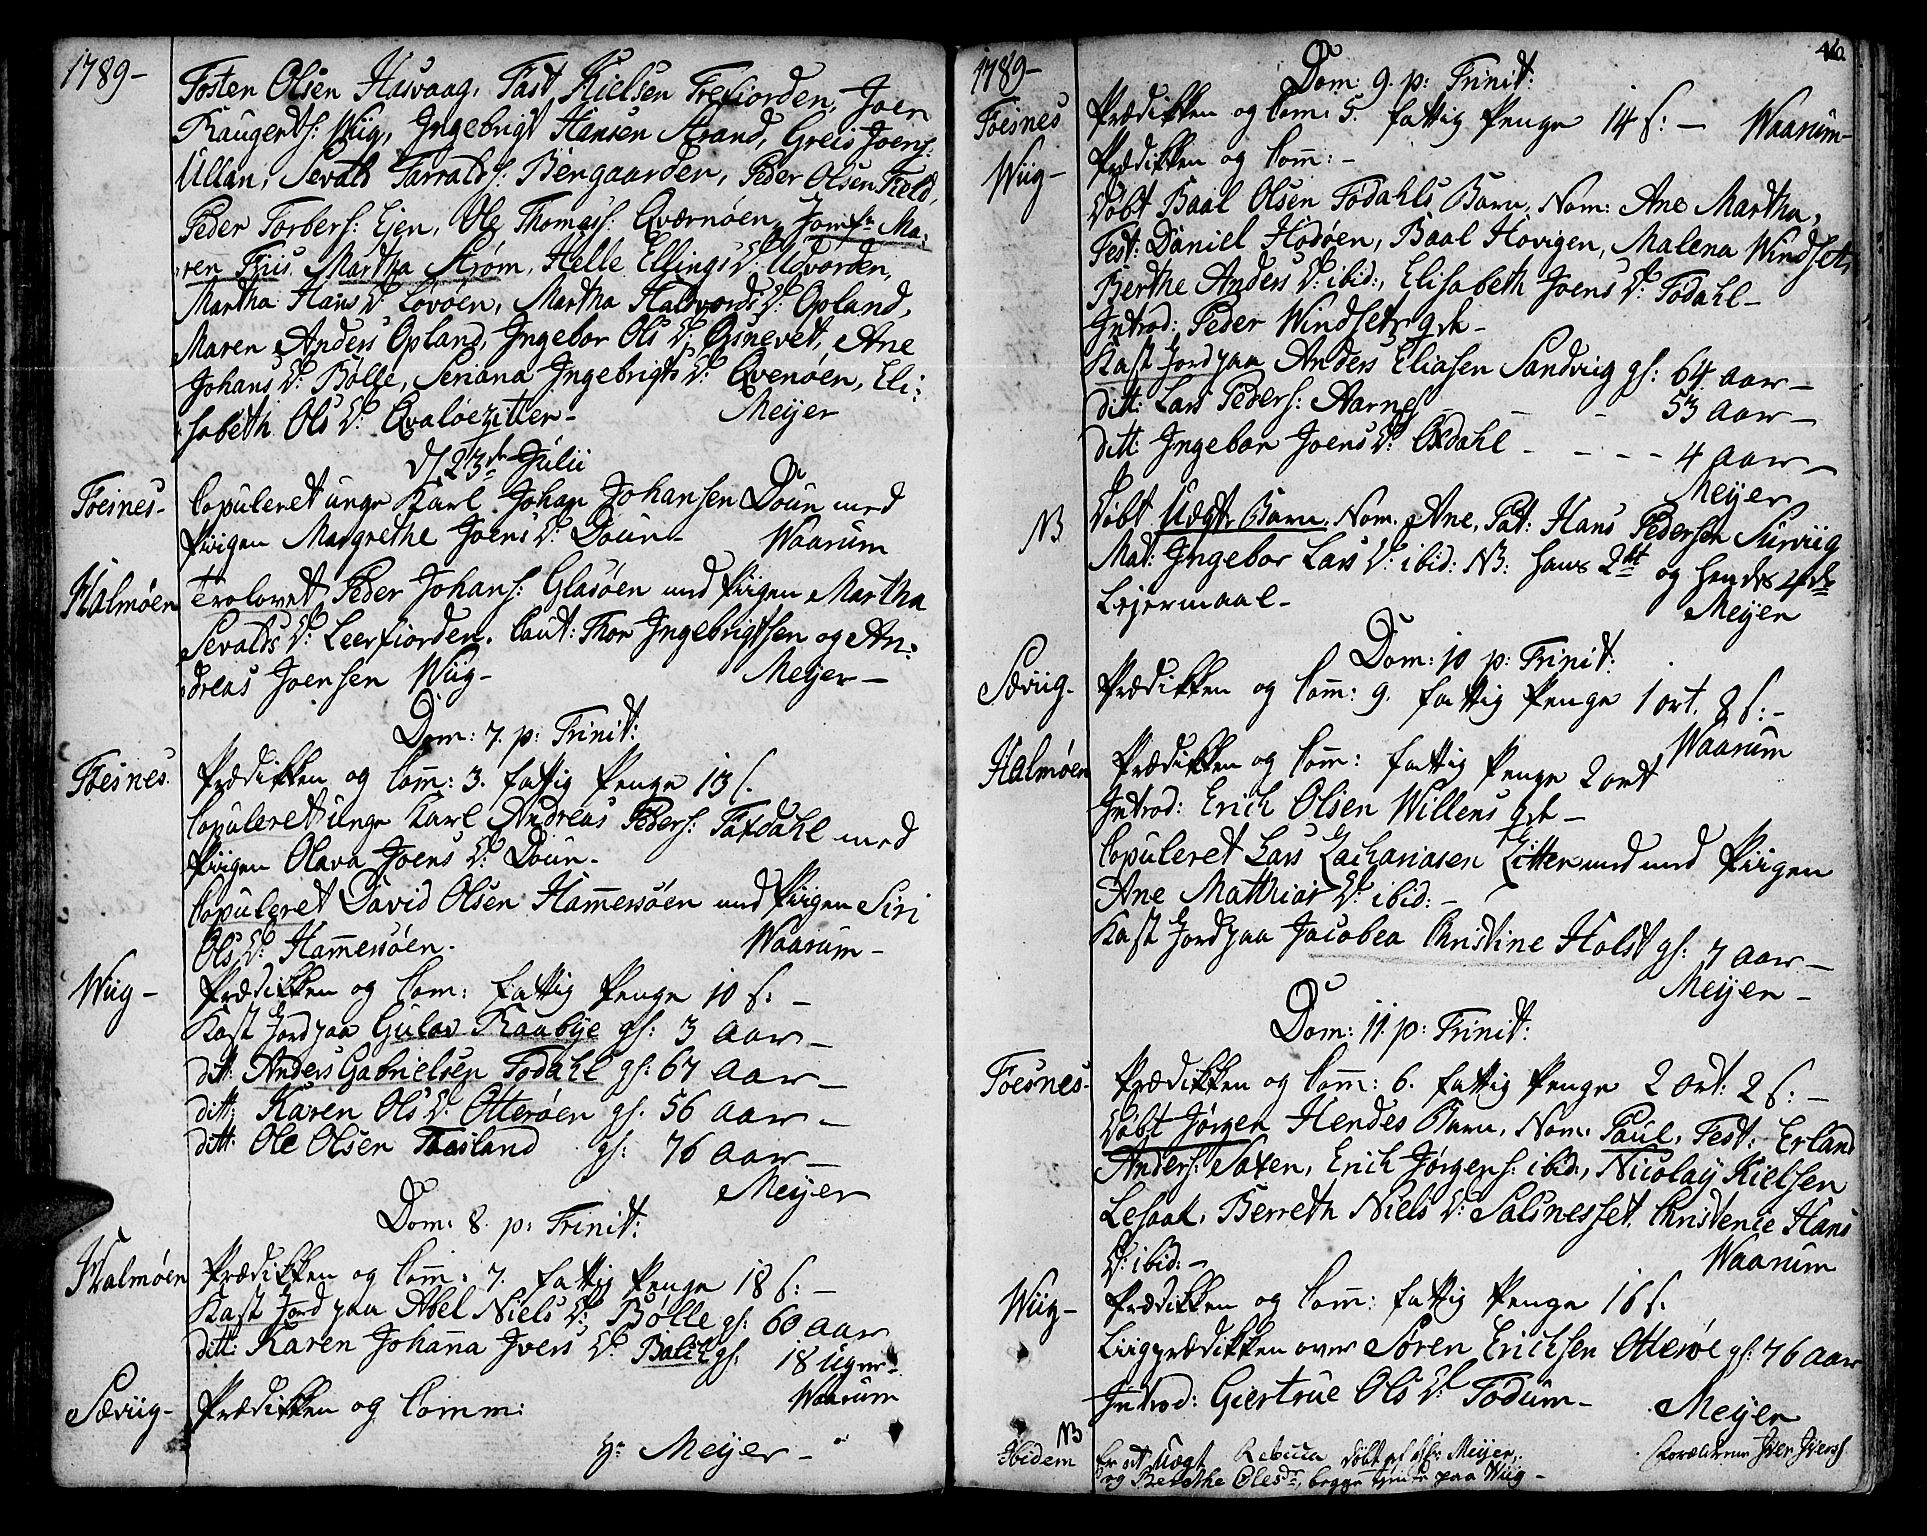 1789-
Tosten Olsen Hasvaag, Fast Kielsen Trefiorden, Joen
Raugerts: Wiig, Ingebrigt Hansen Strand, Greis Joens:
Ullan, Sevald Tarralds: Bengaarden, Peder Olsen Field,
Peder Torbers: Ejen, Ole Thomass: Qværnøen, Jomfr Ma,
ren Friis, Martha Strøm, Helle Ellings D: Udvorden,
Martha Hans D: Lovøen, Martha Halvords D: Opland,
Maren Anders Opland, Ingebor Ols D: Osnevet, Ane
Johans D: Bølle, Seriana Ingebrigts D: Qvenøen, Eli:
sabeth Ols D: Qvaløezitter- Meijer
d 23de Julii
Foesnes- Copuleret unge Karl Johan Johansen Doun med
Piigen Margrethe Joens D: Doun- Waarum
Halmøen Trolovet Peder Johans: Glasøen med Piigen Martha
Sevalds D: Leerfiorden. Caut: Thor Ingebrigtsen og An:
dreas Joensen Wiig- Meijer-
Dom: 7. p: Trinit:
Foesnes. Prædikken og Com: 3. fattig Penge 13 s.
Copuleret unge Karl Andreas Peders: Faxdahl med
Piigen Olava Joens D: Doun-
Copuleret David Olsen Hammersøen med Piigen Siri
Ols D: Hammersøen. Waarum-
Wiig- Prædikken og Com: fattig Penge 10 s: -
Kast Jord paa Gulav Raabye gl: 3 Aar-
ditt: Anders Gabrielsen Fodahl gl: 67 Aar-
ditt: Karen Ols D: Otterøen gl: 56 Aar-
ditt: Ole Olsen Faasland gl: 76 Aar-
Meijer
Dom: 8. p: Trinit:
Halmøen Prædikken og Com: 7. fattig Penge 18 s: -
Kast Jord paa Abel Niels D: Bølle gl: 60 Aar
ditt: Karen Johanna Ivers D: Balch gl: 18 Uger-
Waarum
Sæviig- Prædikken og Comm:
Hr Meijer-
1789-
Dom: 9. p: Trinit:
Foesnes Prædikken og Com: 5. fattig Penge 14 s: - Waarum-
Wiig- Prædikken og Com: -
Døbt Baal Olsen Fodahls Barn, Nom: Ane Martha,
Test: Daniel Hodøen, Baal Hovigen, Malena Windset,
Berthe Anders D: ibid:, Elisabeth Joens D: Fodahl-
Introd: Peder Windsets qde-
Kast Jord paa Anders Eliasen Sandviig gl: 64 Aar-
ditt: Lars Peders: Aarnes - - - 53 Aar-
ditt: Ingebor Joens D: Oxdahl - - - - 4 Aar-
Meijer
NB Døbt Uægte Barn, Nom. Ane, Pat: Hans Pedersen Surviig
Mat: Ingebor Lars D: ibid: NB: hans 2det og hendes 4de
Lejermaal- Meijer
Dom: 10 p: Trinit:
Sæviig- Prædikken og Com: 9. fattig Penge 1 ort. 8 s: -
Waarum
Halmøen Prædikken og Com: fattig Penge 2 ort
Introd: Erich Olsen Willens qde-
Copuleret Lars Zachariasen Zitter med Piigen
Ane Matthias D: ibid: -
Kast Jord paa Jacobea Christine Holst gl: 7 Aar-
Meijer-
Dom: 11. p: Trinit:
Foesnes- Prædikken og Com: 6. fattig Penge 2 ort. 2 s: -
Døbt Jørgen Hendes Barn, Nom: Paul, Test: Erland
Anders: Saxen, Erich Jørgens: ibid:, Nicolay Kielsen
Lesaal, Berreth Niels D: Salsnesset, Christense Hans
D: ibid: - Waarum
Wiig- Prædikken og Com: fattig Penge 16 s.
Liigprædikken over Søren Erichsen Otterøe gl: 76 Aar
Introd: Giertrue Ols D: Fodum- Meijer
NB
Ibidem Er et Uægt Rebecca døbt af Hr: Meijer, Forældrene Iver Ivers:
og Berethe Olesdr, begge tjente paa Wiig-